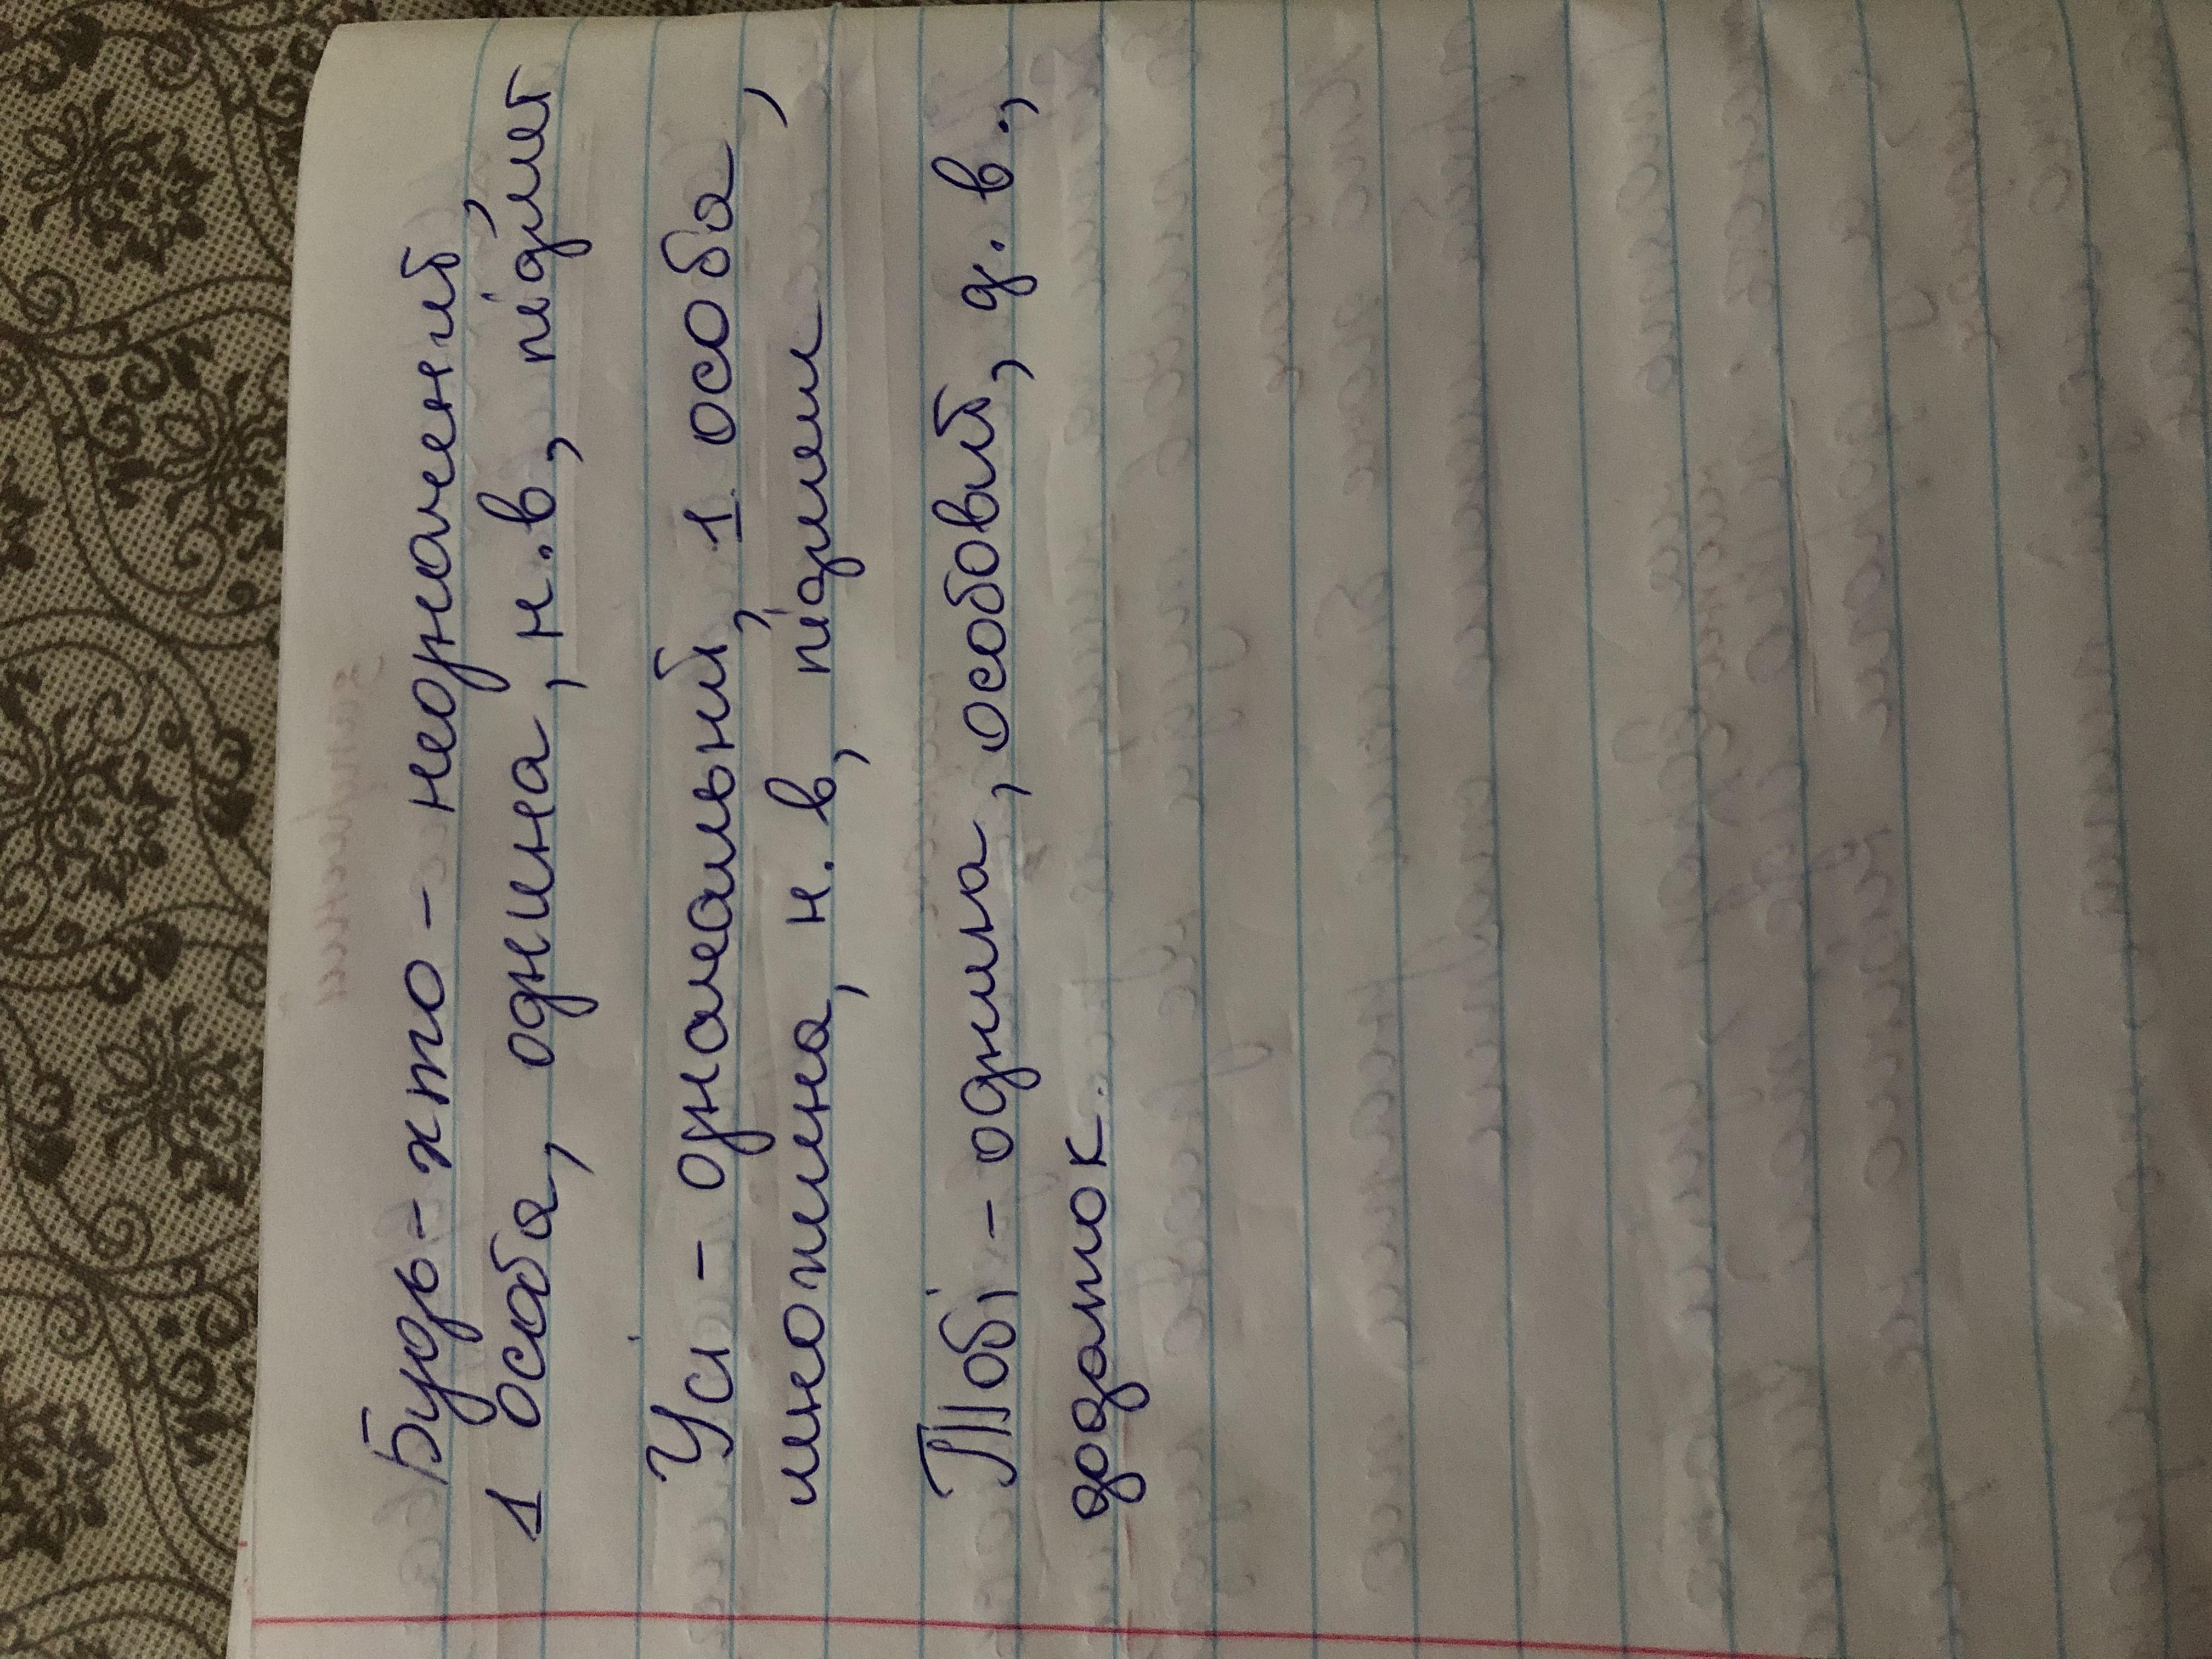 Будь-хто - неозначений,
1 особа, однина, н.в, підмет
Усі - означальний, 1 особа,
множина, н. в, підмет
Тобі - однина, особовий, д. в.,
додаток.